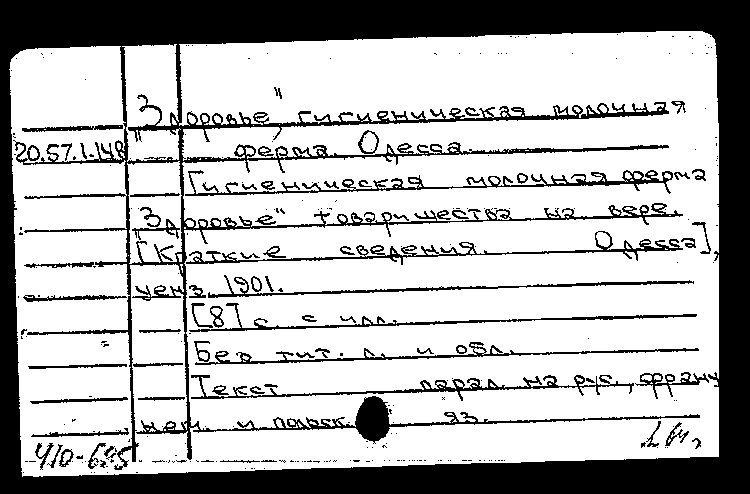 "Здоровье", гигиеническая молочная
20.57.1.148 ферма. Одесса.
Гигиеническая молочная ферма
"Здоровье" товарищества на вере.
[Краткие сведения. Одесса],
ценз. 1901.
[8] с. с илл.
Без тит. л. и обл.
Текст парал. на рус., франц.
нем. и польск. яз.
Ч10-685